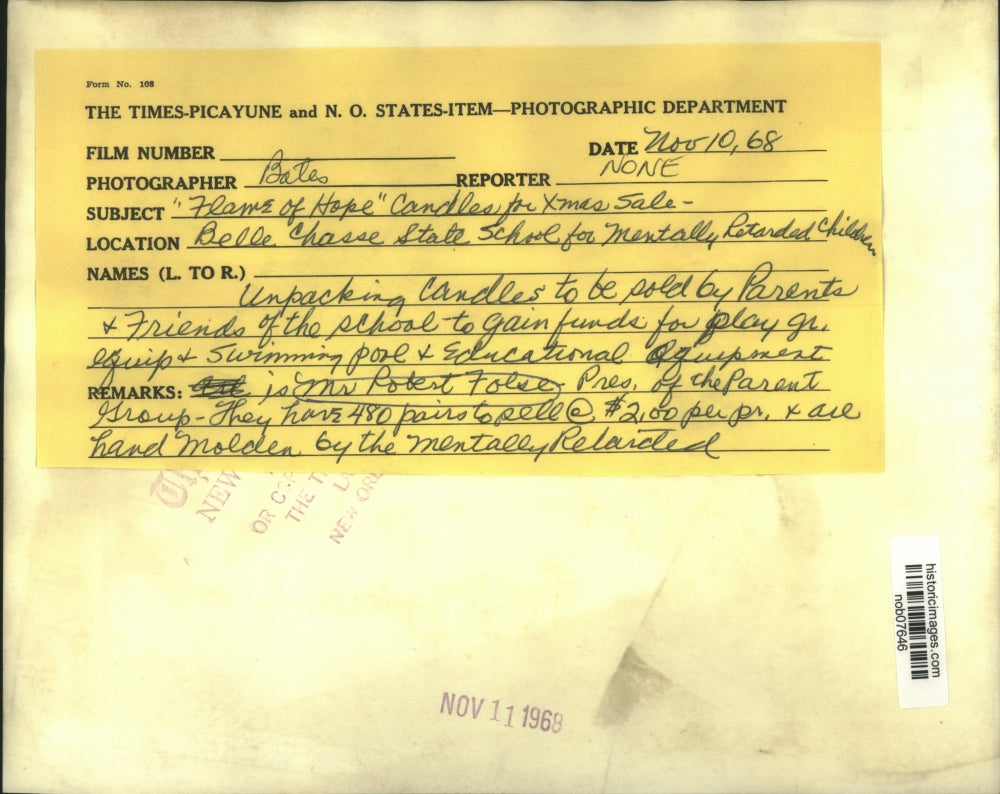 Form No. 108
THE TIMES-PICAYUNE and N. O. STATES-ITEM—PHOTOGRAPHIC DEPARTMENT
FILM NUMBER DATE Nov 10, 68
PHOTOGRAPHER Bates REPORTER NONE
SUBJECT "Flame of Hope" Candles for Xmas Sale -
LOCATION Belle Chasse State School for Mentally Retarded Children
NAMES (L. TO R.)
Unpacking Candles to be sold by Parents
& Friends of the school to gain funds for play gr.
equip & Swimming pool & Educational Equipment
REMARKS: is Mr Robert Folse, Pres. of the Parent
Group - They have 480 pairs to sell @ $2.00 per pr. & are
hand Molden by the Mentally Retarded
NEW
OR
THE T
LA
NEW ORL
historicimages.com
nob07646
NOV 11 1968